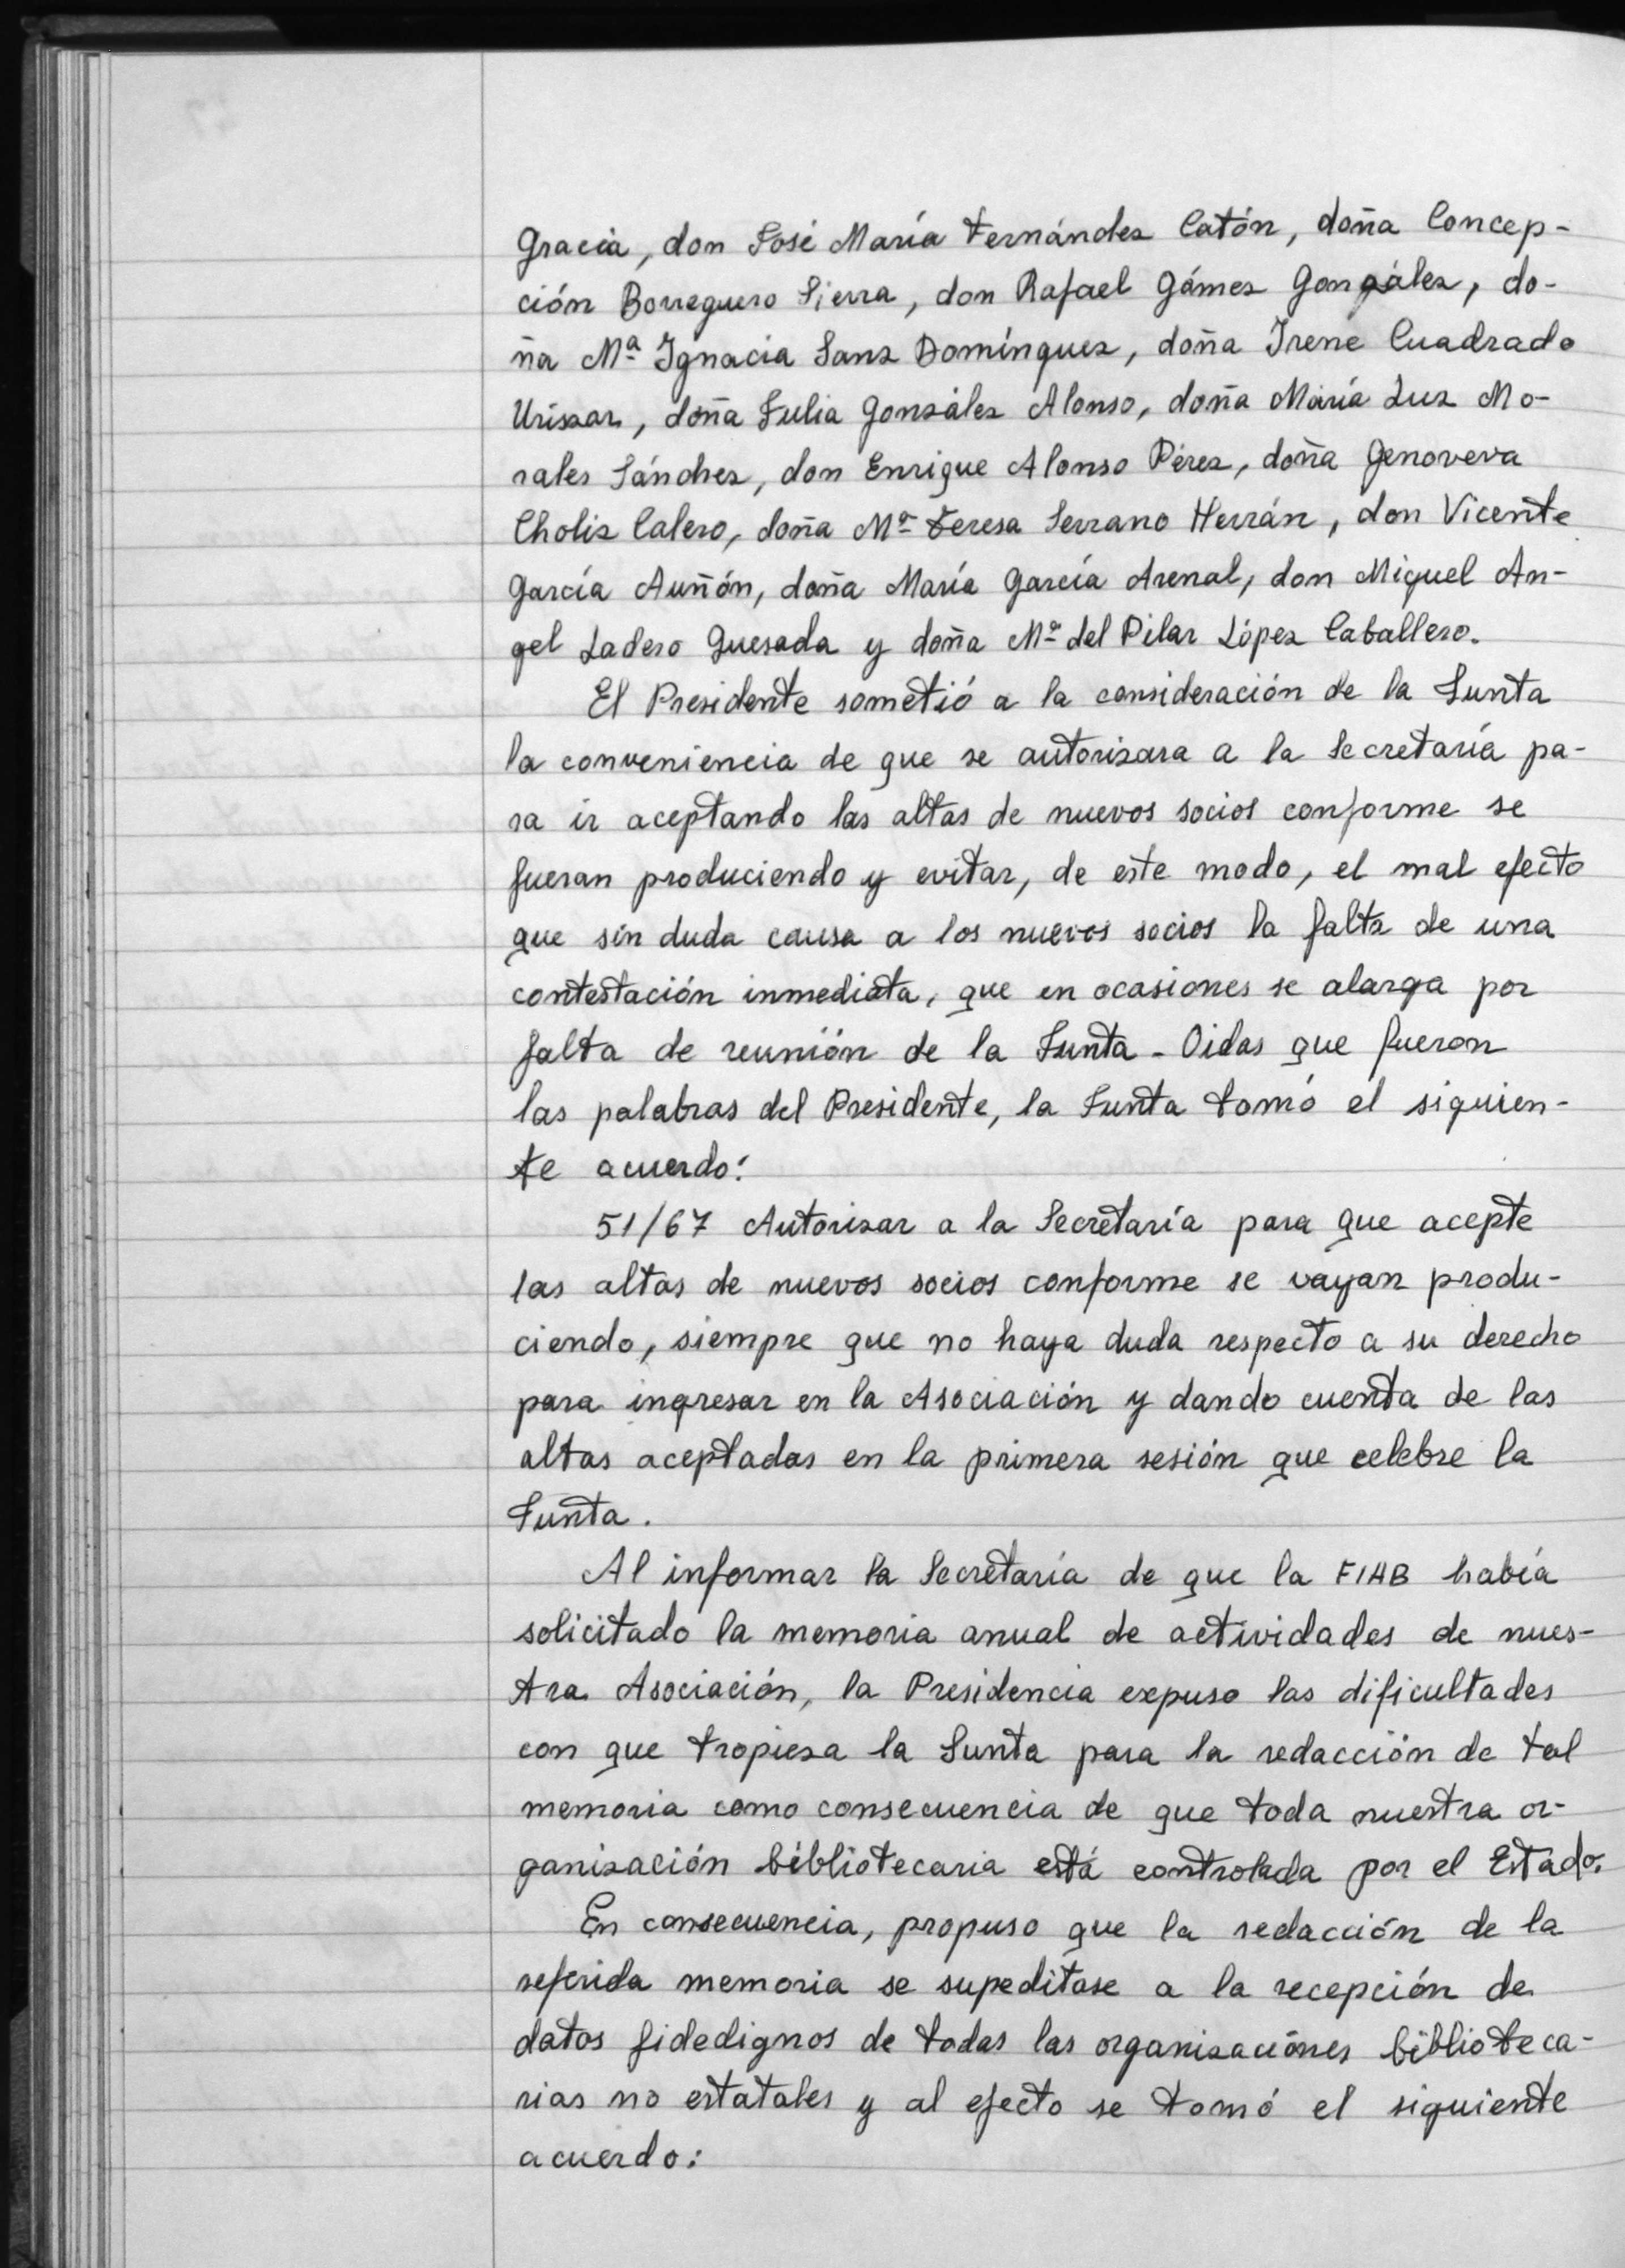 Gracia, don José María Fernández Catón, doña Concep-
ción Borreguero Sierra, don Rafael Gámez González, do-
ña Mª Ignacia Sanz Domínguez, doña Irene Cuadrado
Urizzar, doña Julia González Alonso, doña María Luz Mo-
rales Sánchez, don Enrique Alonso Pérez, doña Genoveva
Choliz Calero, doña Mª Teresa Serrano Herrán, don Vicente
García Auñón, doña María García Arenal, don Miguel An-
gel Ladero Quesada y doña Mª del Pilar López Caballero.
El Presidente sometió a la consideración de la Junta
la conveniencia de que se autorizara a la Secretaría pa-
ra ir aceptando las altas de nuevos socios conforme se
fueran produciendo y evitar, de este modo, el mal efecto
que sin duda causa a los nuevos socios la falta de una
contestación inmediata, que en ocasiones se alarga por
falta de reunión de la Junta - Oidas que fueron
las palabras del Presidente, la Junta tomó el siguien-
te acuerdo:
51/67 Autorizar a la Secretaría para que acepte
las altas de nuevos socios conforme se vayan produ-
ciendo, siempre que no haya duda respecto a su derecho
para ingresar en la Asociación y dando cuenta de las
altas aceptadas en la primera sesión que celebre la
Junta.
Al informar la Secretaría de que la FIAB había
solicitado la memoria anual de actividades de nues-
tra Asociación, la Presidencia expuso las dificultades
con que tropieza la Junta para la redacción de tal
memoria como consecuencia de que toda nuestra or-
ganización bibliotecaria está controlada por el Estado.
En consecuencia, propuso que la redacción de la
referida memoria se supeditase a la recepción de
datos fidedignos de todas las organizaciónes biblioteca-
rias no estatales y al efecto se tomó el siguiente
acuerdo: